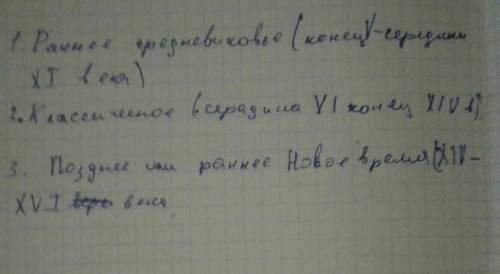 1. Раннее средневиковье (конец V-середины
XI века)
2. Классическое (середина VI конец XIV в)
3. Позднее или раннее Новое время (XIV-
XVI века